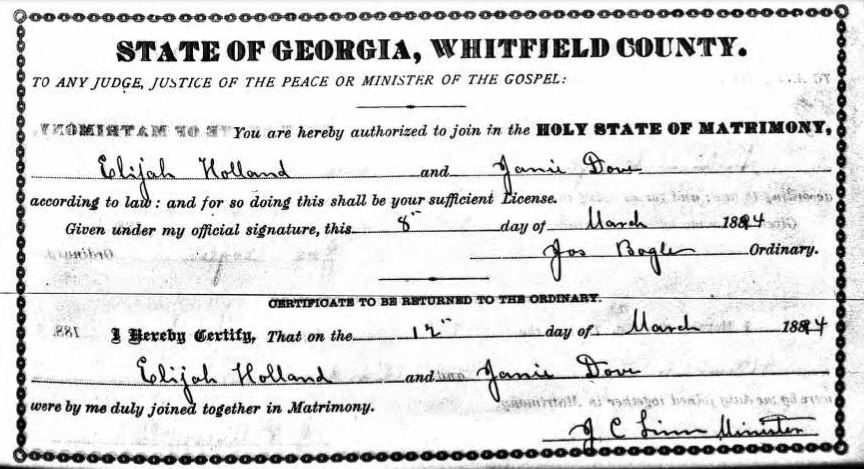 STATE OF GEORGIA, WHITFIELD COUNTY.
TO ANY JUDGE, JUSTICE OF THE PEACE OR MINISTER OF THE GOSPEL:
You are hereby authorized to join in the HOLY STATE OF MATRIMONY,
Elijah Holland and Janie Dove
according to law: and for so doing this shall be your sufficient License.
Given under my official signature, this 8" day of March 1894
Jos Bogle Ordinary.
CERTIFICATE TO BE RETURNED TO THE ORDINARY.
I Hereby Certify, That on the 12" day of March 1894
Elijah Holland and Janie Dove
were by me duly joined together in Matrimony.
J C Linn Minister